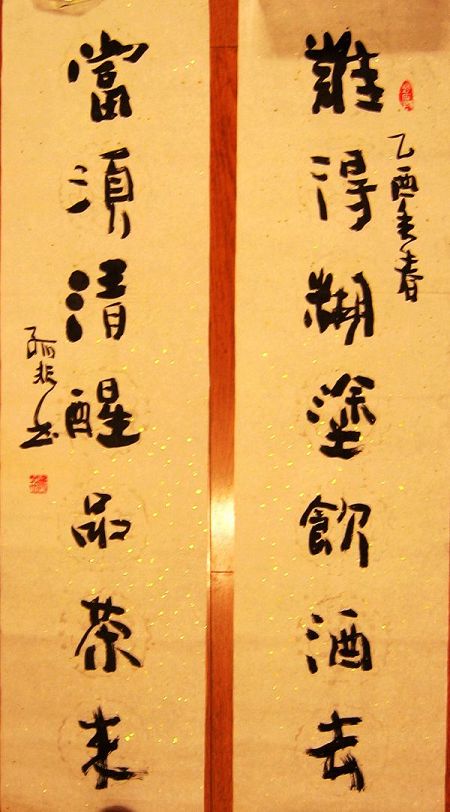 難得糊塗飲酒去
乙酉年春
當須清醒品茶來